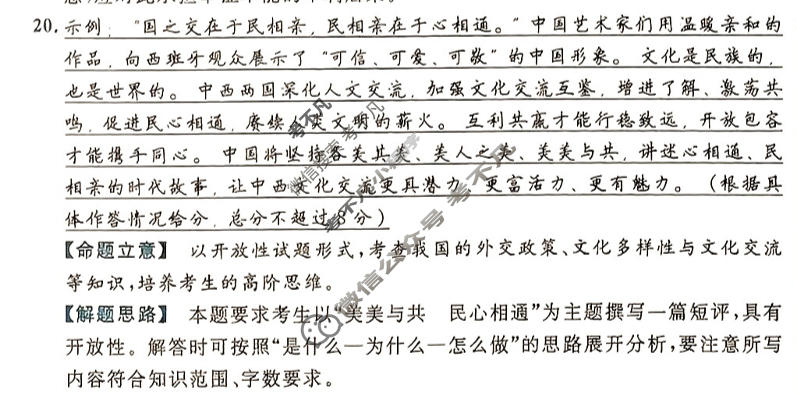 20. 示例：“国之交在于民相亲，民相亲在于心相通。”中国艺术家们用温暖亲和的
作品，向西班牙观众展示了“可信、可爱、可敬”的中国形象。文化是民族的，
也是世界的。中西两国深化人文交流，加强文化交流互鉴，增进了解、激荡共
鸣，促进民心相通，赓续人类文明的薪火。互利共赢才能行稳致远，开放包容
才能携手同心。中国将坚持各美其美、美人之美、美美与共，讲述心相通、民
相亲的时代故事，让中西文化交流更具潜力、更富活力、更有魅力。（根据具
体作答情况给分，总分不超过8分）
【命题立意】 以开放性试题形式，考查我国的外交政策、文化多样性与文化交流
等知识，培养考生的高阶思维。
【解题思路】 本题要求考生以“美美与共 民心相通”为主题撰写一篇短评，具有
开放性。解答时可按照“是什么—为什么—怎么做”的思路展开分析，要注意所写
内容符合知识范围、字数要求。
考不凡
微信搜索小程序
考不凡
微信公众号 考不凡